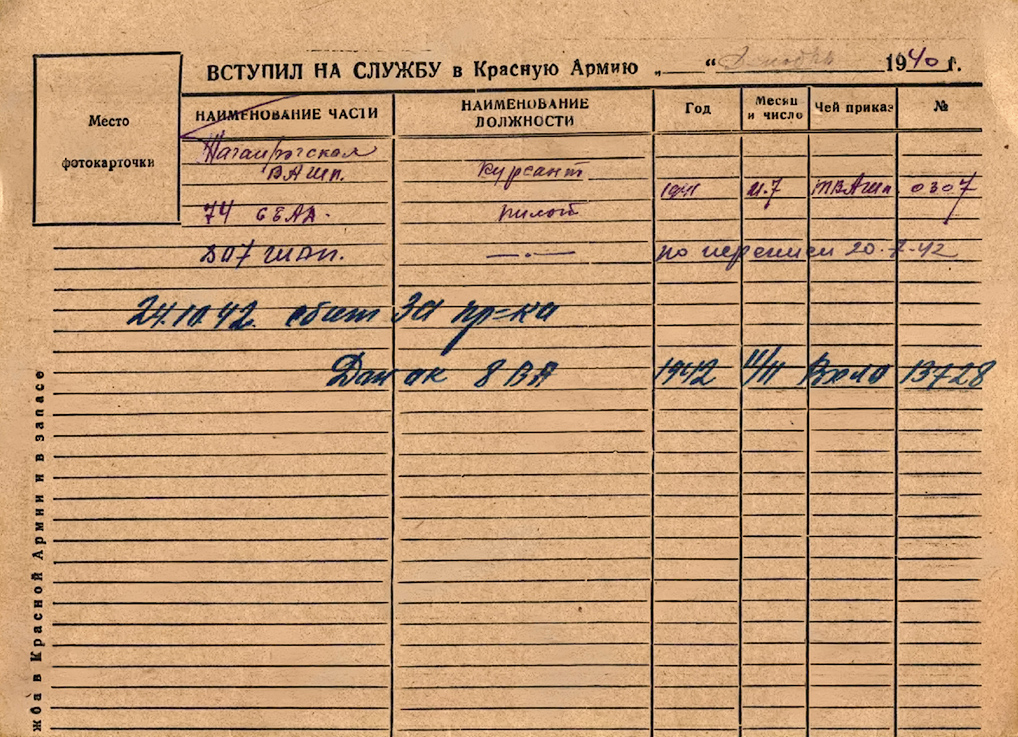 ВСТУПИЛ НА СЛУЖБУ в Красную Армию „ “ 1940 г.
Место
фотокарточки
НАИМЕНОВАНИЕ ЧАСТИ
НАИМЕНОВАНИЕ ДОЛЖНОСТИ
Год
Месяц и число
Чей приказ
№
Таганрогская
ВАШП. курсант
1941 М.7 ТВАшп. 0307
74 СБАП. пилот
807 шап. —〃— по переписи 20.7.42
24.10.42. сбит ЗА пр-ка
8 ВА 1942 11/11 13728
жба в Красной Армии и в запасе